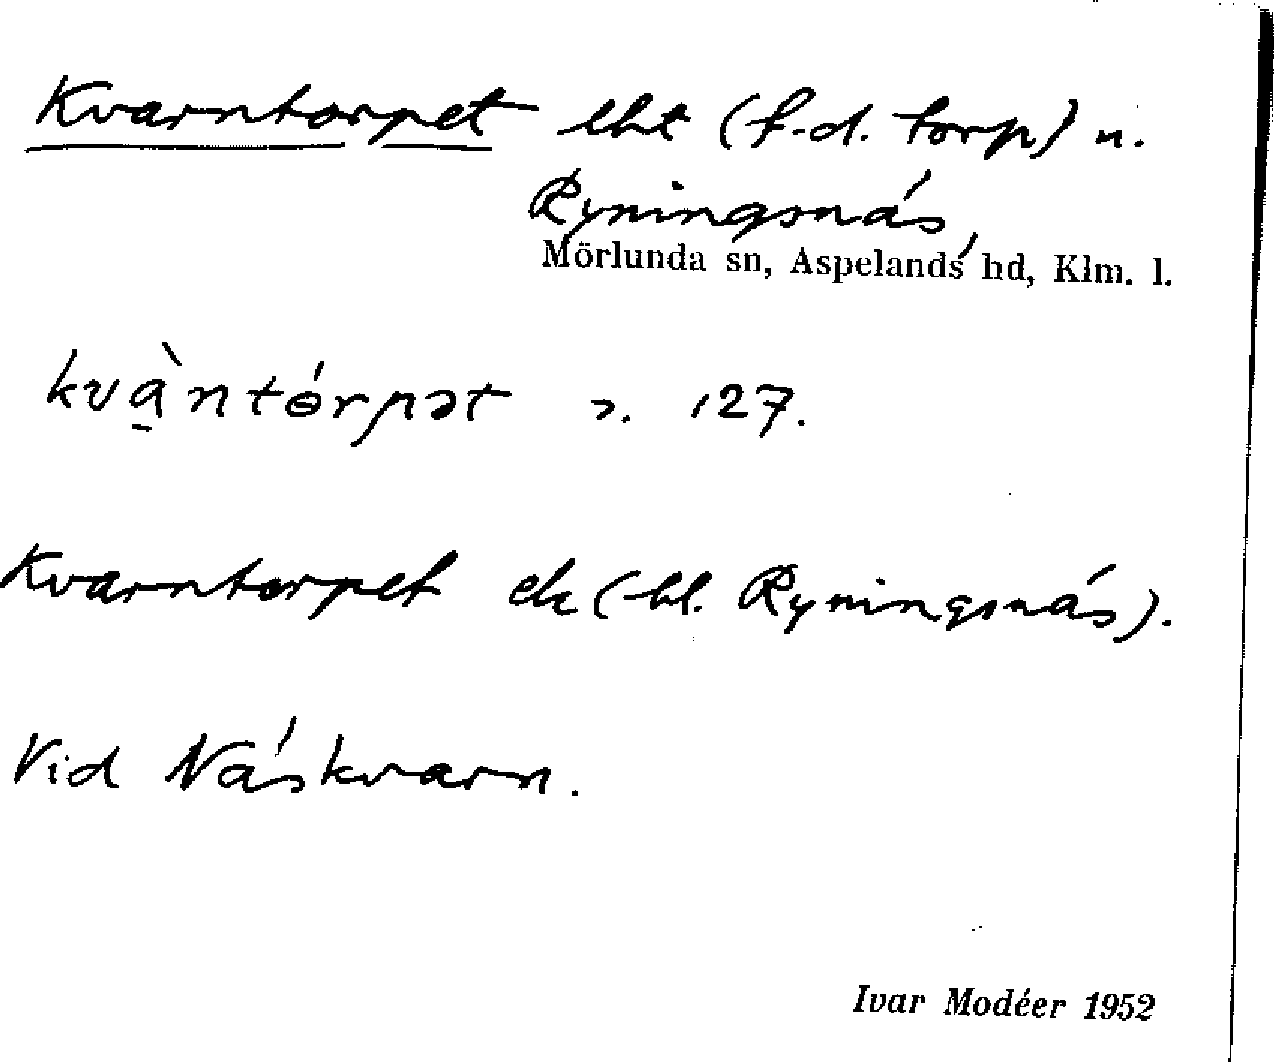 Kvarntorpet lht (f.d. torp) u.
Ryningsnäs,
Mörlunda sn, Aspelands hd, Klm. l.
kvà̱ntɵ́rpət ɔ. 127.
Kvarntorpet ek (bl. Ryningsnäs).
Vid Näskvarn.
Ivar Modéer 1952